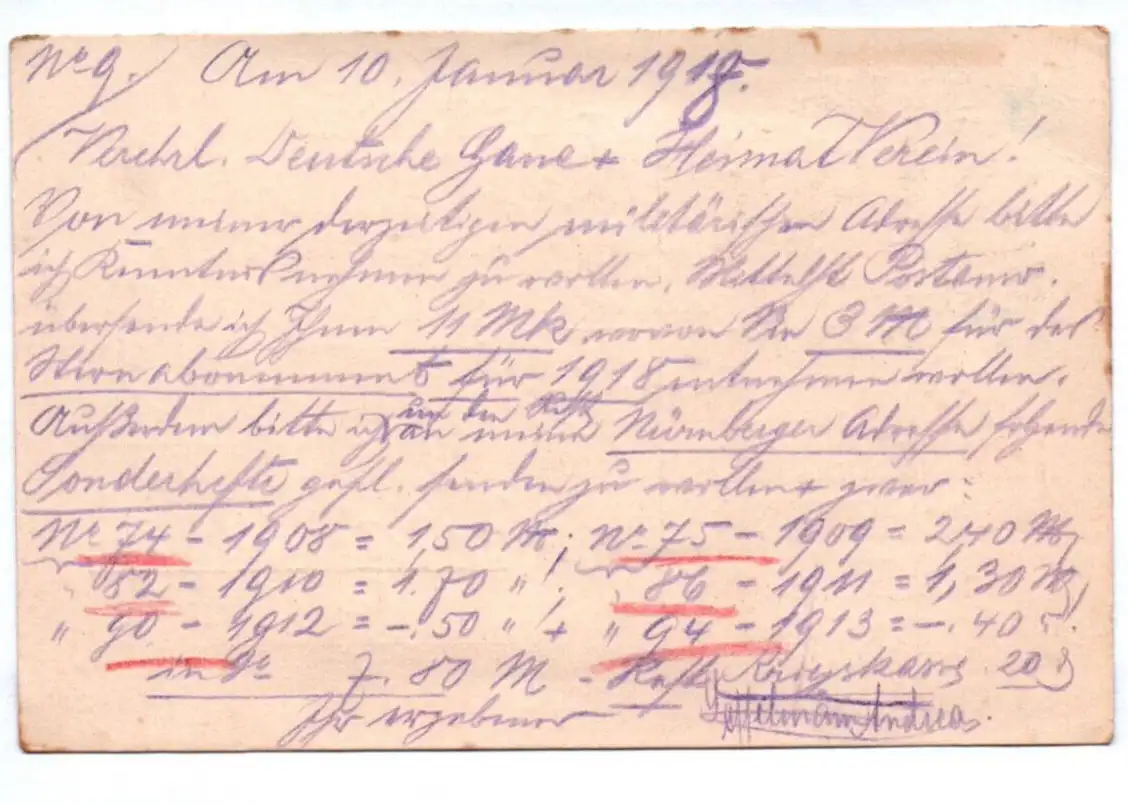 No 9. Am 10. Januar 1918.
Verehrl. Deutsche Gaue + Heimat Verein!
Von meiner derzeitigen militärischen Adresse bitte
ich Kenntnis nehmen zu wollen. Mittelst Postanw.
übersende ich Ihnen 11 Mk wovon Sie 3 M für das
abonnement für 1918 entnehmen wollen.
Außerdem bitte ich um den Rest an meine Nürnberger Adresse folgende
Sonderhefte gefl. senden zu wollen + zwar:
No 74 - 1908 = 1,50 M; No 75 - 1909 = 2,40 M,
82 - 1910 = 1.70 " ! ; 86 - 1911 = 1,30 M,
" 90 - 1912 = -.50 " ! + " 94 - 1913 = -. 40 .
7. 80 M - Rest Kriegskasse 20
Ihr ergebener Andreas.